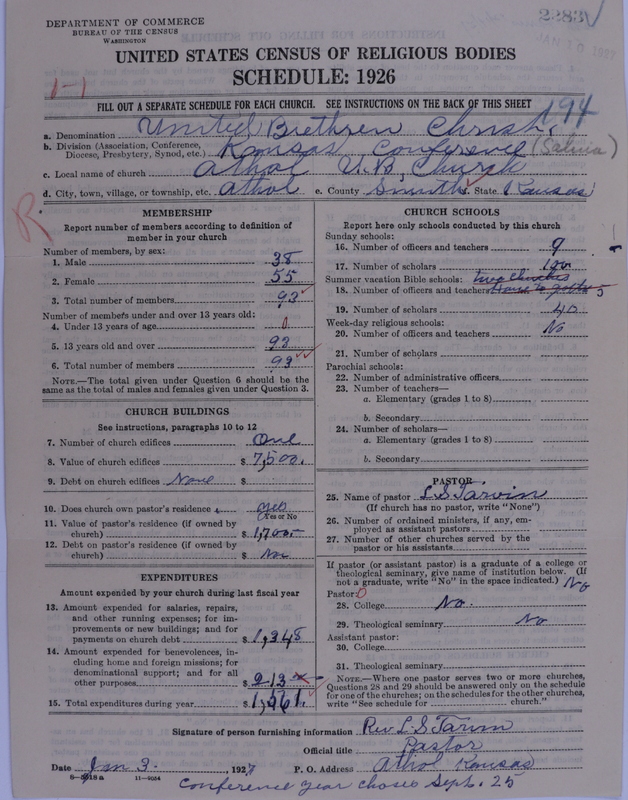 DEPARTMENT OF COMMERCE
BUREAU OF THE CENSUS
WASHINGTON
2283
UNITED STATES CENSUS OF RELIGIOUS BODIES
SCHEDULE: 1926
1-1
FILL OUT A SEPARATE SCHEDULE FOR EACH CHURCH. SEE INSTRUCTIONS ON THE BACK OF THIS SHEET
194
a. Denomination United Brethren Christ.
b. Division (Association, Conference, Diocese, Presbytery, Synod, etc.) Kansas Conference (Salina)
c. Local name of church Athol U.B. Church
d. City, town, village, or township, etc. Athol e. County Smith f. State Kansas
MEMBERSHIP
Report number of members according to definition of
member in your church
Number of members, by sex:
1. Male 38
2. Female 55
3. Total number of members 93
Number of members under and over 13 years old:
4. Under 13 years of age 0
5. 13 years old and over 93
6. Total number of members 93
NOTE.—The total given under Question 6 should be the
same as the total of males and females given under Question 3.
CHURCH BUILDINGS
See instructions, paragraphs 10 to 12
7. Number of church edifices One
8. Value of church edifices $ 7,500.
9. Debt on church edifices None $
10. Does church own pastor's residence? yes
(Yes or No)
11. Value of pastor's residence (if owned by
church) $ 1,700
12. Debt on pastor's residence (if owned by
church) $ No
EXPENDITURES
Amount expended by your church during last fiscal year
13. Amount expended for salaries, repairs,
and other running expenses; for im-
provements or new buildings; and for
payments on church debt $ 1,348
14. Amount expended for benevolences, in-
cluding home and foreign missions; for
denominational support; and for all
other purposes $ 213
15. Total expenditures during year $ 1,561.
CHURCH SCHOOLS
Report here only schools conducted by this church
Sunday schools:
16. Number of officers and teachers 9
17. Number of scholars 100
Summer vacation Bible schools: two churches
18. Number of officers and teachers 5
19. Number of scholars 40
Week-day religious schools:
20. Number of officers and teachers No
21. Number of scholars
Parochial schools:
22. Number of administrative officers
23. Number of teachers—
a. Elementary (grades 1 to 8)
b. Secondary
24. Number of scholars—
a. Elementary (grades 1 to 8)
b. Secondary
PASTOR
25. Name of pastor L S Tarvin
(If church has no pastor, write "None")
26. Number of ordained ministers, if any, em-
ployed as assistant pastors
27. Number of other churches served by the
pastor or his assistants
If pastor (or assistant pastor) is a graduate of a college or
theological seminary, give name of institution below. (If
not a graduate, write "No" in the space indicated.) No
Pastor: 0
28. College No.
29. Theological seminary No
Assistant pastor:
30. College
31. Theological seminary
NOTE.—Where one pastor serves two or more churches,
Questions 28 and 29 should be answered only on the schedule
for one of the churches; on the schedules for the other churches,
write "See schedule for church."
Signature of person furnishing information Rev L. S Tarvin
Official title Pastor
Date Jan 3. , 1927 P. O. Address Athol Kansas
8-5918 a 11-9034
Conference year closes Sept. 25